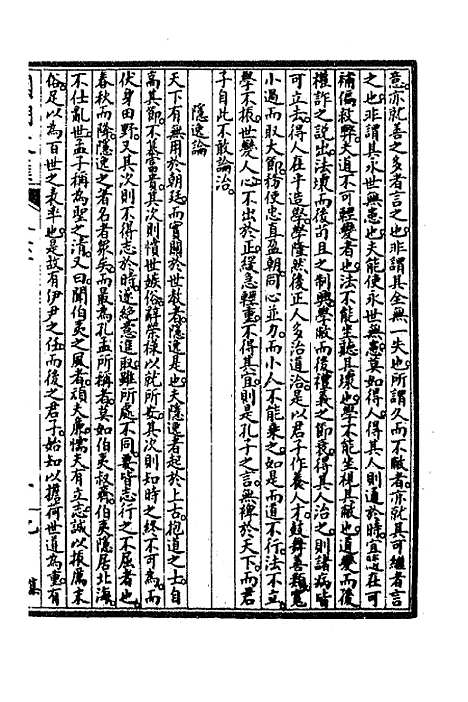 意亦就善之多者言之也非謂其全無一失也所謂久而不敝者亦就其可繼者言
之也非謂其永世無患也夫能使永世無患莫如得人得其人則通於時宜在可
補偏救弊夫道不可輕變者也法不能坐聽其壞也學不能坐視其敝也而後
權詐之說出法壞而後苟且之制興學敝而後禮義之節衰得其人治之則諸病皆
可立去得人在乎造學學隆然後正人多治道洽是以君子作養人才鼓舞善類寬
小過而取大節務使忠直盈朝同心並力而小人不能乗之如是而道不行法不立
學不振世變人心不出於正緩急輕重不得其宜則是孔子之言無裨於天下而君
子自此不敢論治
隱逸論
天下有無用於朝廷而實關於世教者隱逸是也夫隱逸者起於上古抱道之士自
高其節不慕富貴其次則憤世嫉俗辭榮祿以就所安其次則知時之終不可為而
伏身田野又其次則不得志於時遂絕意進取雖所處不同要皆志行之不屈者也
春秋而降隱逸之著名者衆矣而最為孔孟所稱者莫如伯夷叔齊伯夷隱居北海
不仕亂世孟子稱為聖之清又曰聞伯夷之風者頑夫廉懦夫有立志誠以振厲末
俗足以為百世之表率也是故有伊尹之任而後之君子始知以擔荷世道為重有